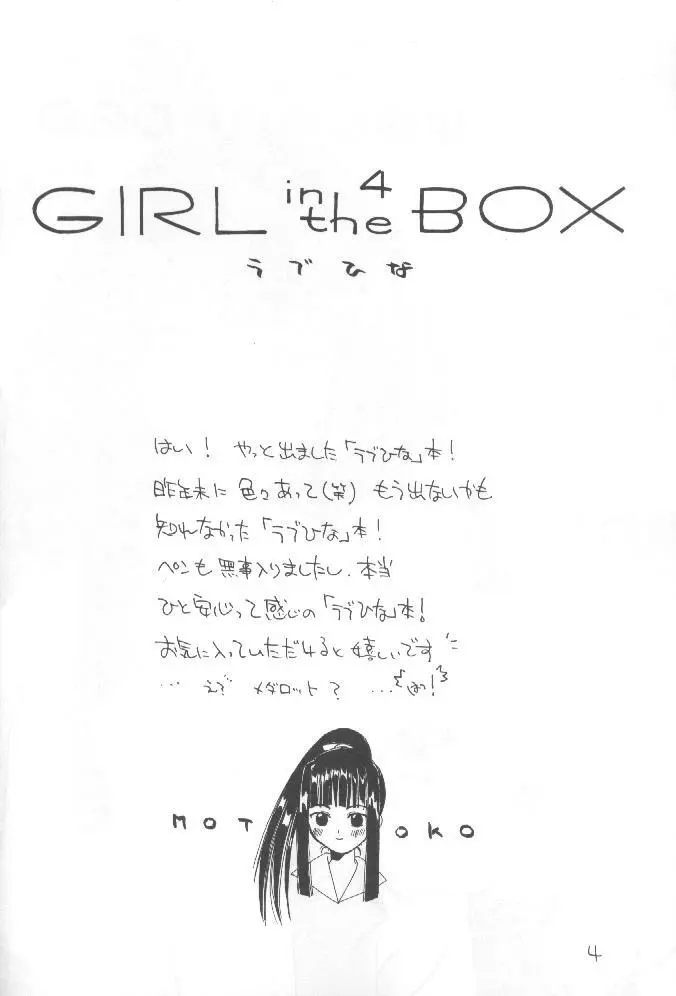 GIRL in the 4 BOX
ラブひな
はい! やっと出ました「ラブひな」本!
昨年末に色々あって(笑) もう出ないかも
知れなかった「ラブひな」本!
ペンも無事入りましたし、本当
ひと安心って感じの「ラブひな」本!
お気に入っていただけると嬉しいです
… え? メダロット? … はっ!
MOTOKO
4